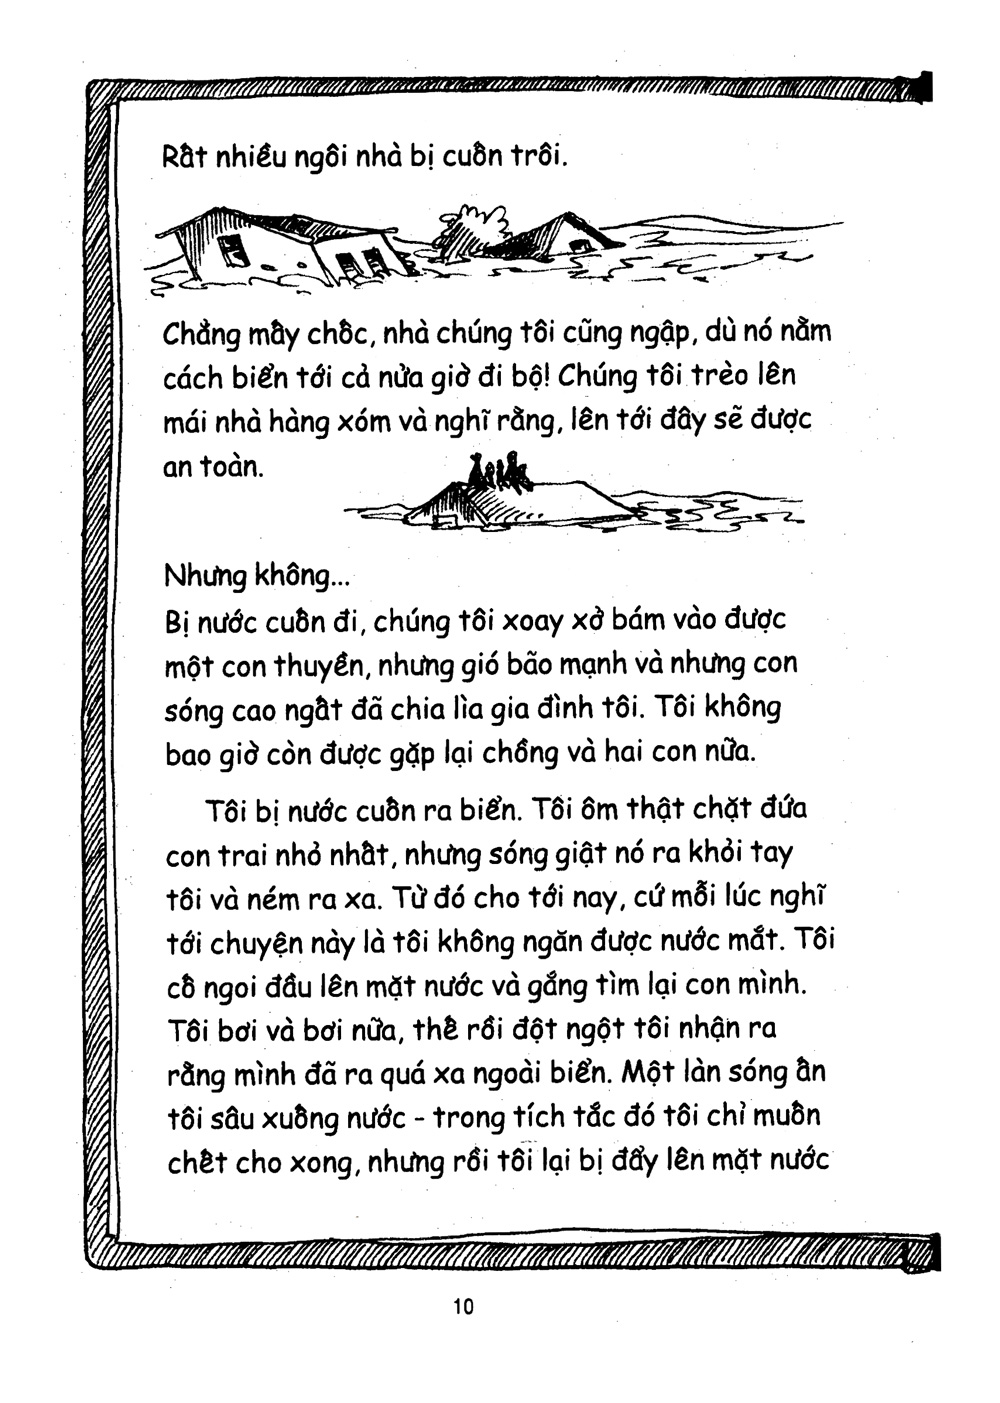 Rất nhiều ngôi nhà bị cuốn trôi.
Chẳng mấy chốc, nhà chúng tôi cũng ngập, dù nó nằm
cách biển tới cả nửa giờ đi bộ! Chúng tôi trèo lên
mái nhà hàng xóm và nghĩ rằng, lên tới đây sẽ được
an toàn.
Nhưng không...
Bị nước cuốn đi, chúng tôi xoay xở bám vào được
một con thuyền, nhưng gió bão mạnh và nhưng con
sóng cao ngất đã chia lìa gia đình tôi. Tôi không
bao giờ còn được gặp lại chồng và hai con nữa.
Tôi bị nước cuốn ra biển. Tôi ôm thật chặt đứa
con trai nhỏ nhất, nhưng sóng giật nó ra khỏi tay
tôi và ném ra xa. Từ đó cho tới nay, cứ mỗi lúc nghĩ
tới chuyện này là tôi không ngăn được nước mắt. Tôi
cố ngoi đầu lên mặt nước và gắng tìm lại con mình.
Tôi bơi và bơi nữa, thế rồi đột ngột tôi nhận ra
rằng mình đã ra quá xa ngoài biển. Một làn sóng ấn
tôi sâu xuống nước - trong tích tắc đó tôi chỉ muốn
chết cho xong, nhưng rồi tôi lại bị đẩy lên mặt nước
10